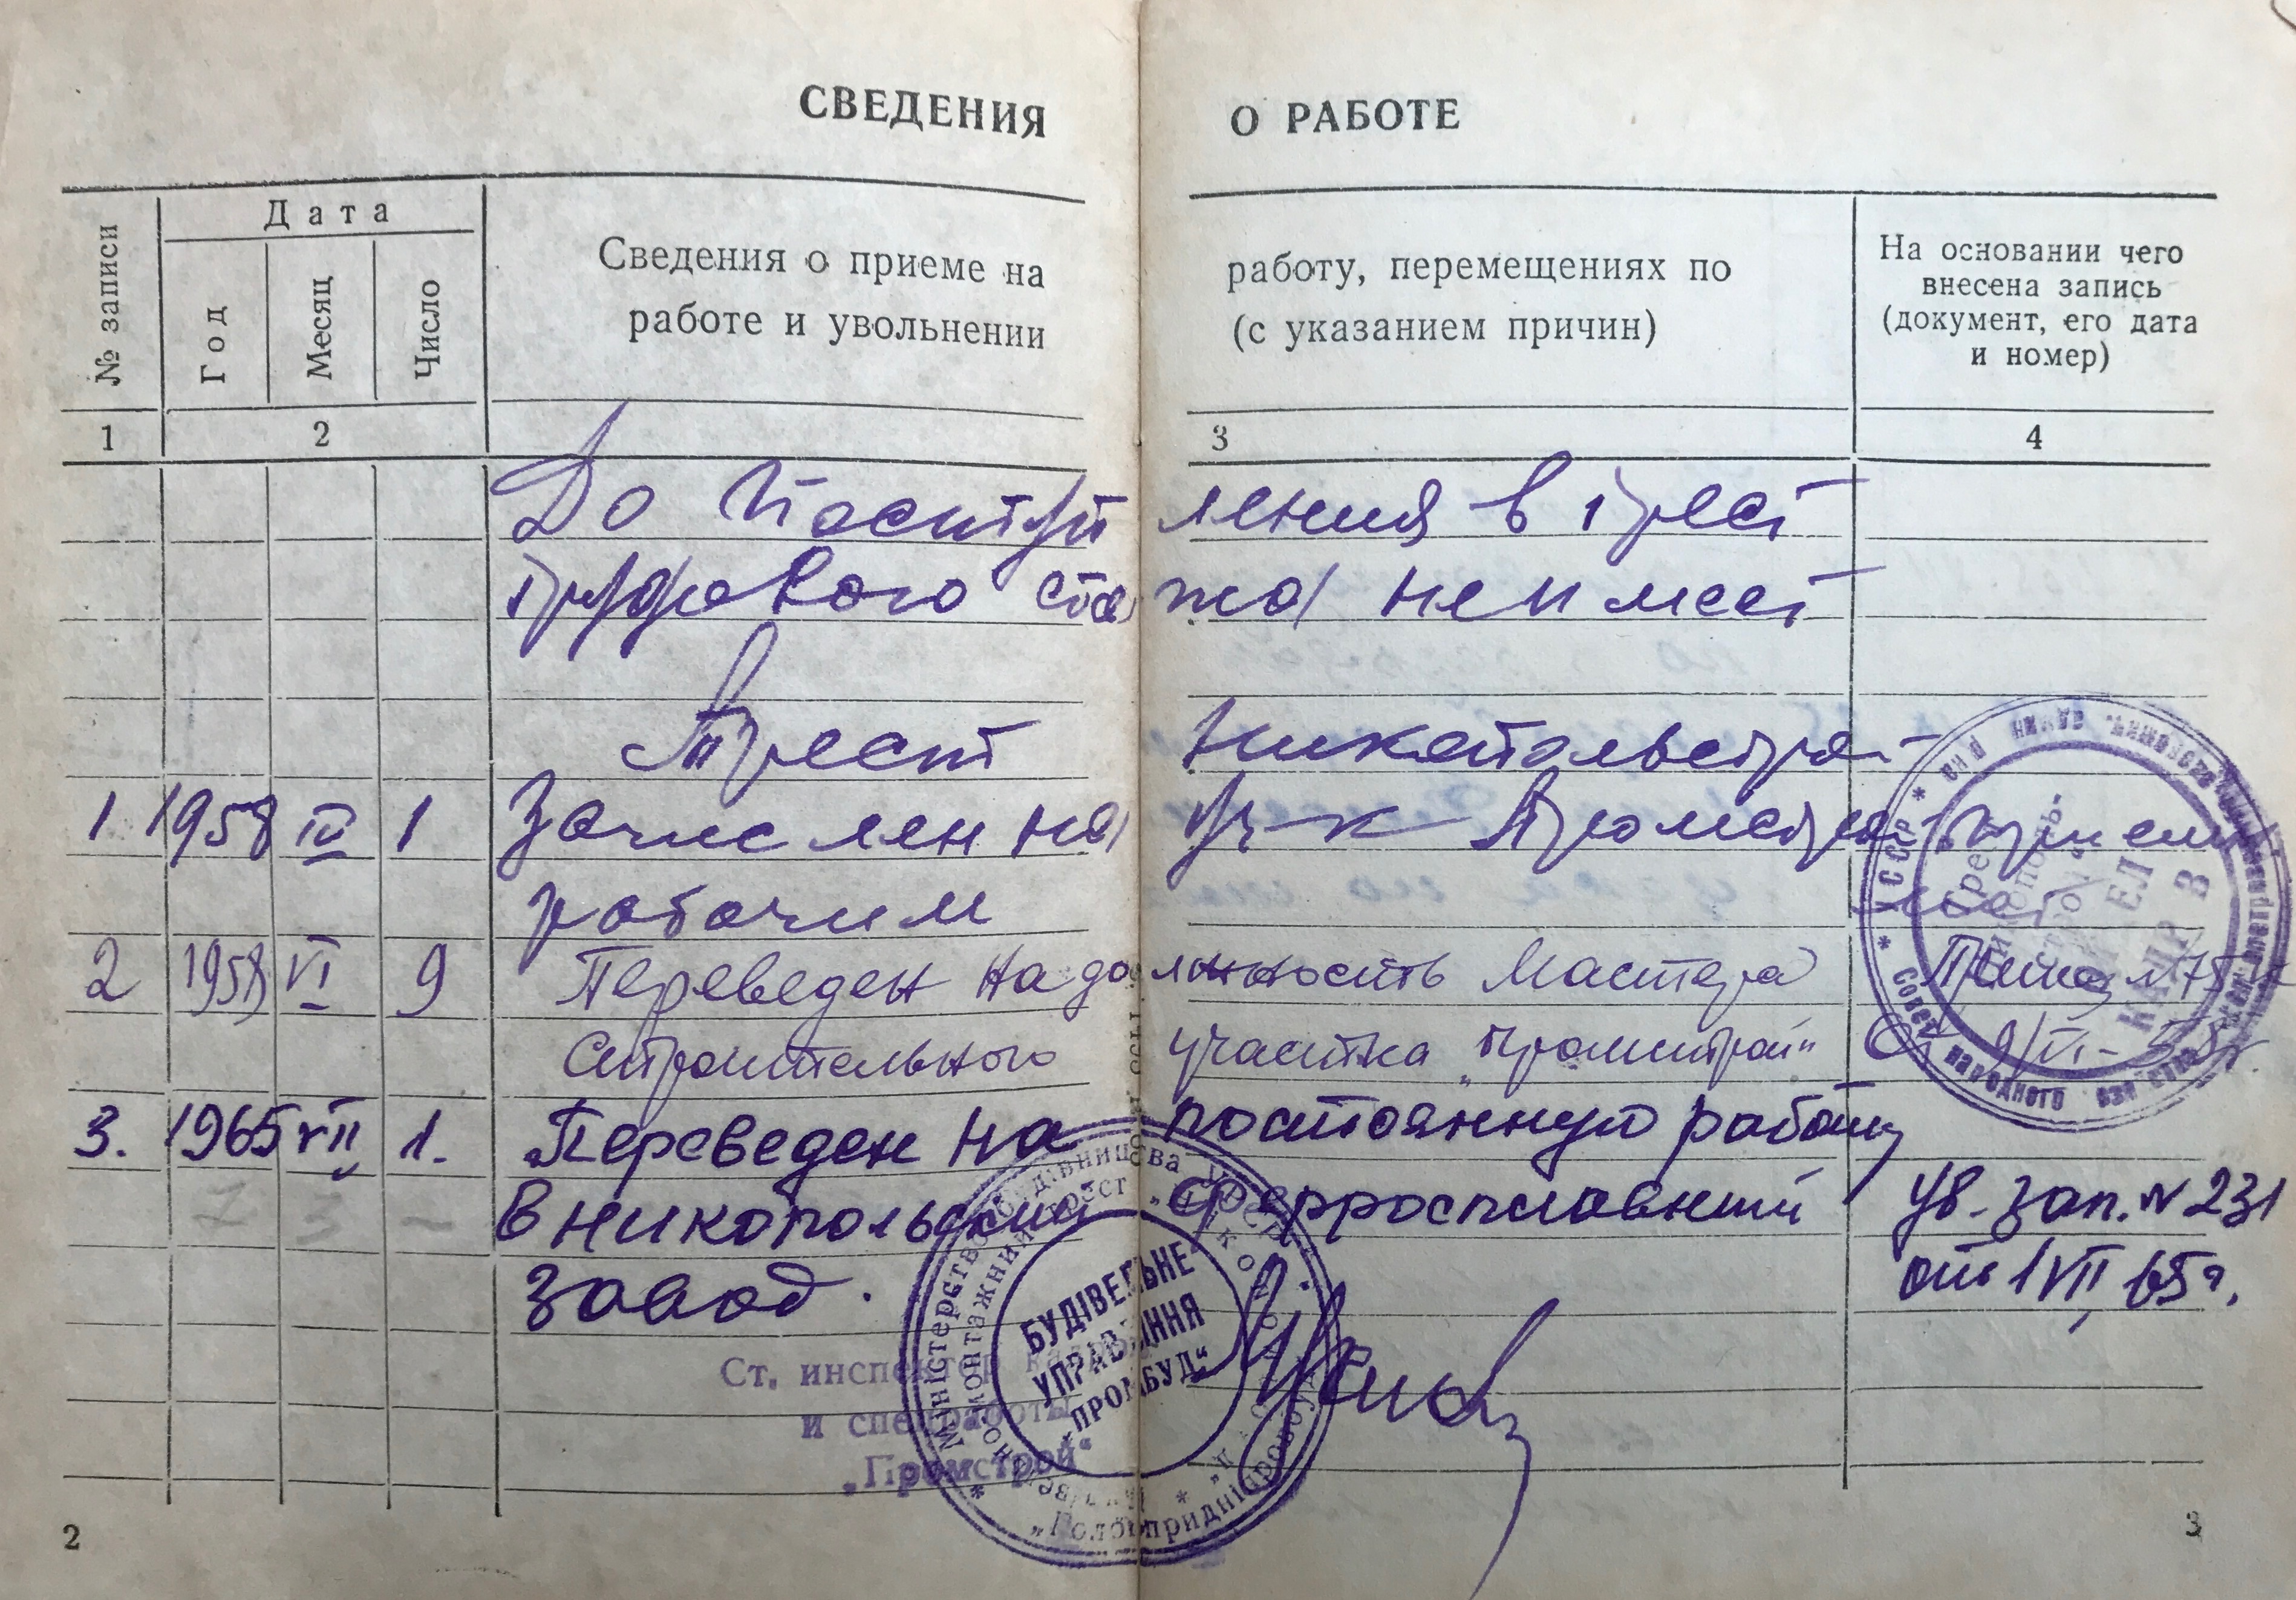 СВЕДЕНИЯ О РАБОТЕ
№ записи
Дата
Год
Месяц
Число
Сведения о приеме на работу, перемещениях по
работе и увольнении (с указанием причин)
На основании чего
внесена запись
(документ, его дата
и номер)
1 2 3 4
До поступления в трест
трудового стажа не имеет
Трест Никопольстрой
1 1958 IV 1 Зачислен на уч-к Промстрой
рабочим
2 1958 VI 9 Переведен на должность мастера Приказ N 75
Строительного участка "Промстрой" От 9/VI-58г
3. 1965 VII 1. Переведен на постоянную работу
в Никопольский ферросплавный Ув. зап. N 231
завод. от 1 VII 65г.
Трест
Никополь-
строй
УССР
народного
БУДІВЕЛЬНЕ
УПРАВЛІННЯ
"ПРОМБУД"
Міністерство будівництва УРСР
Ст. инспектор
и спецработы
„Промстрой"
2
3